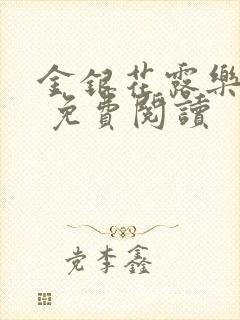 金銀花露樂
免費閱讀
党李鑫